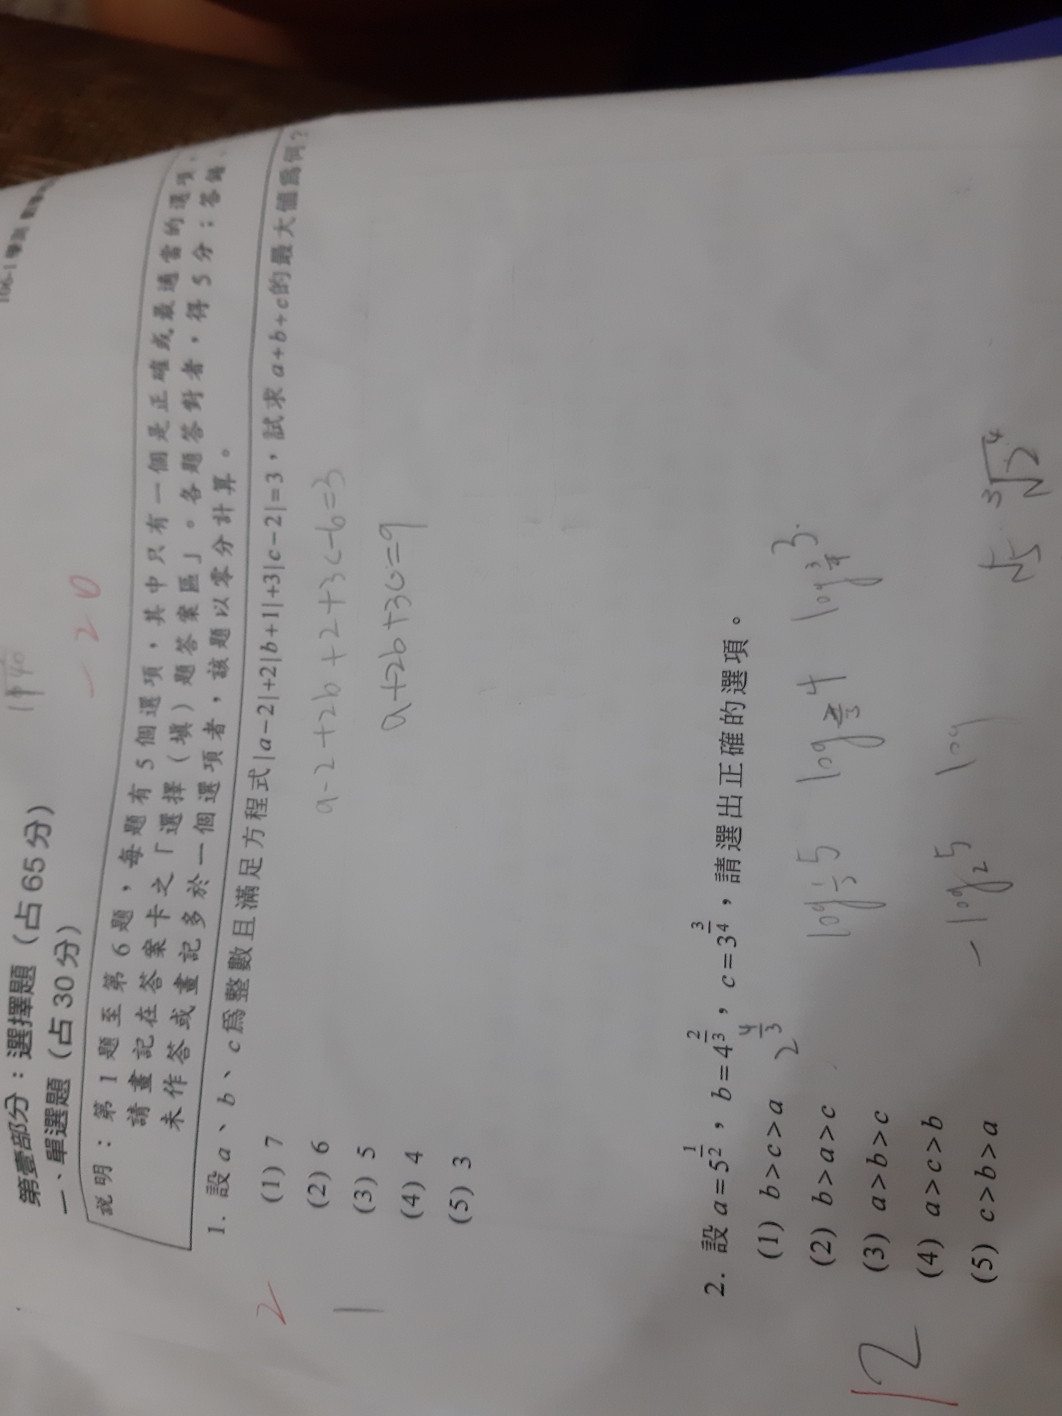 第壹部分：選擇題（占 65 分）
一、單選題（占 30 分）
- 20
說明：第 1 題至第 6 題，每題有 5 個選項，其中只有一個是正確或最適當的選項，
請畫記在答案卡之「選擇（填）題答案區」。各題答對者，得 5 分；答錯、
未作答或畫記多於一個選項者，該題以零分計算。
2
1
1. 設 a、b、c 為整數且滿足方程式 |a-2|+2|b+1|+3|c-2|=3，試求 a+b+c 的最大值為何？
a-2+2b+2+3c-6=3
(1) 7
(2) 6
a+2b+3c=9
(3) 5
(4) 4
(5) 3
12
2. 設 a=5^{\frac{1}{2}}，b=4^{\frac{2}{3}}，c=3^{\frac{3}{4}}，請選出正確的選項。
2^{\frac{4}{3}}
(1) b>c>a
(2) b>a>c
(3) a>b>c
(4) a>c>b
- log_2 5 log
(5) c>b>a
√5 ∛2^4